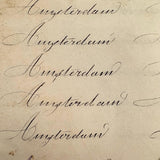 Amsterdam
Amsterdam
Amsterdam
Amsterdam
Amsterdam